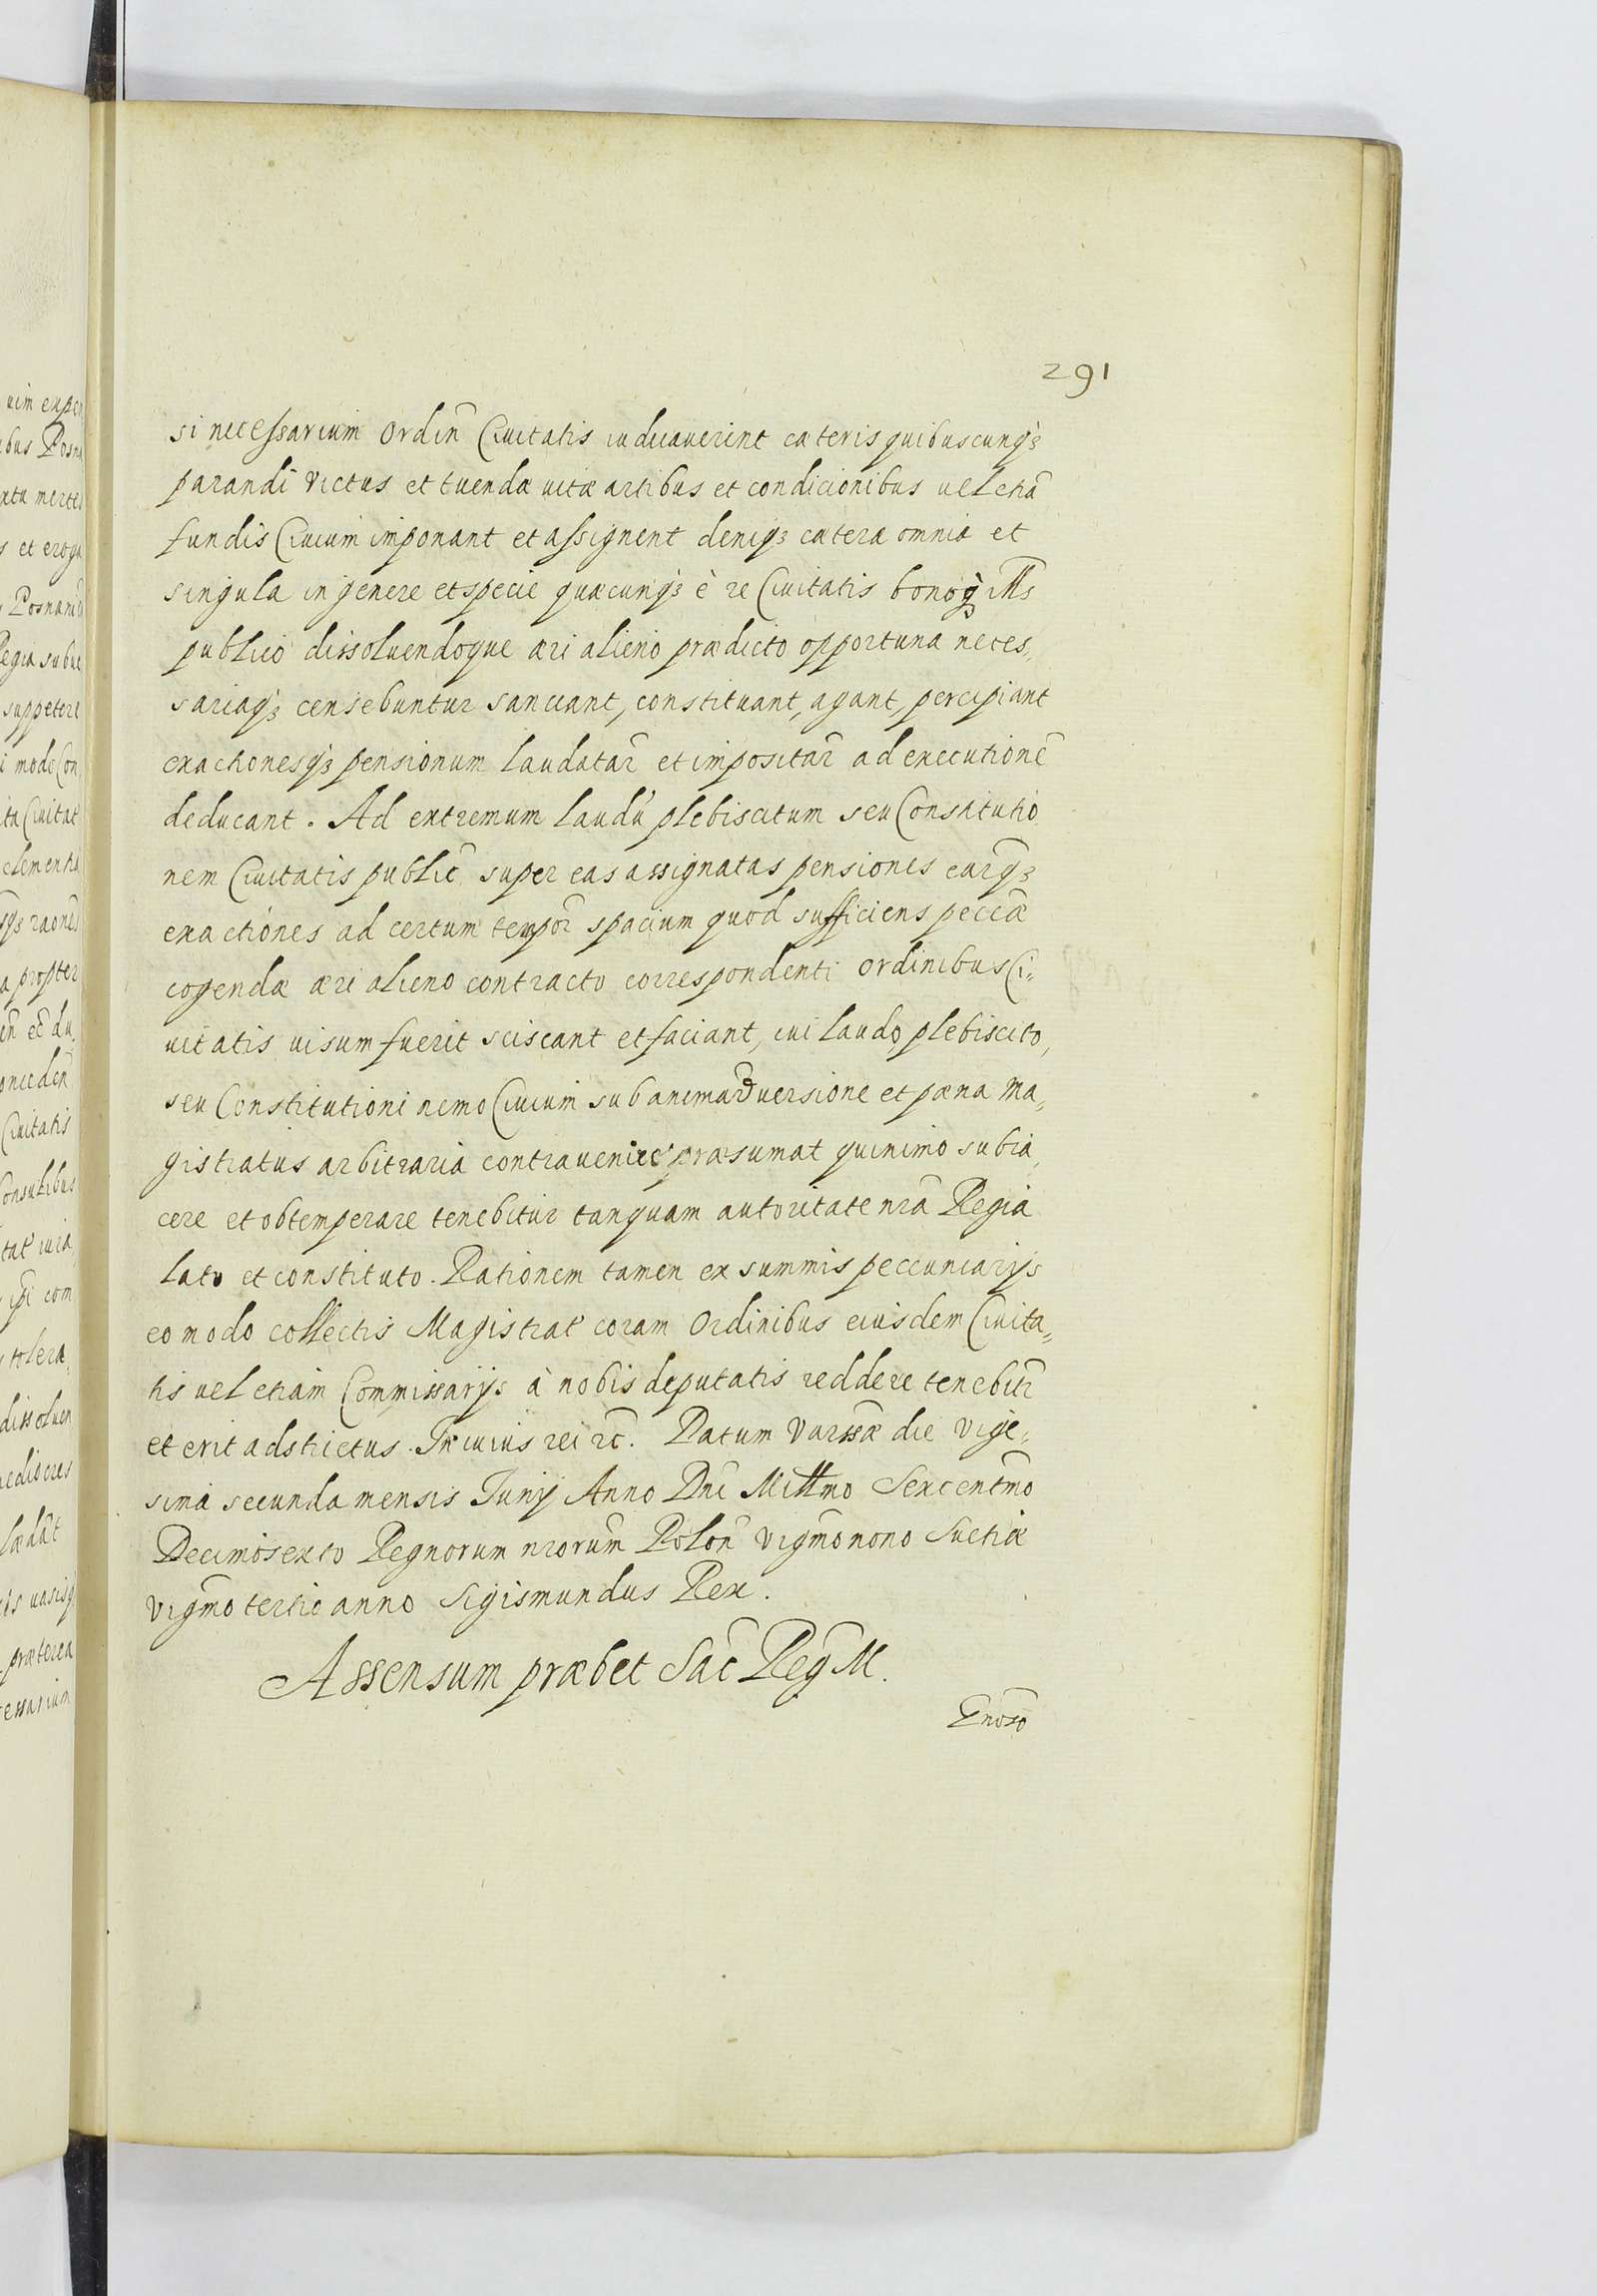 291
si necessarium Ordin̄ Ciuitatis iudicauerint cæteris quibuscunq₃
parandi victus et tuendæ uitæ artibus et condicionibus uel etiā
fundis Ciuium imponant et assignent deniq₃ cætera omnia et
singula in genere et specie quæcunq₃ è re Ciuitatis bonoq₃ illīs
publico dissoluendoque æri alieno prædicto opportuna neces„
sariaq₃ censebuntur sanciant, constituant, agant, percipiant
exactionesq₃ pensionum laudatar̄ et impositar̄ ad executionē
deducant. Ad extremum laudū plebiscitum seu Constitutio
nem Ciuitatis public̄ super eas assignatas pensiones earq̄₃
exactiones ad certum tempor̄ spacium quod sufficiens peccǣ
cogendæ æri alieno contracto correspondenti Ordinibus Ci„
uitatis uisum fuerit sciscant et faciant, cui laudo, plebiscito,
seu Constitutioni nemo Ciuium sub animaduersione et pæna Ma„
gistratus arbitraria contrauenire præsumat quinimo subia„
cere et obtemperare tenebitur tanquam autoritate nr̄a Regia
lato et constituto. Rationem tamen ex summis peccuniarijs
eo modo collectis Magistrat' coram Ordinibus eiusdem Ciuita„
tis uel etiam Commissarijs à nobis deputatis reddere tenebitr̄
et erit adstrictus. In cuius rei rc̄. Datum Varssǣ die Vige„
sima secunda mensis Junij Anno Dn̄i Millmo Sexcentm̄o
Decimosexto Regnorum nrorum̄ Polon̄ Vigm̄o nono Suetiæ
vigm̄o tertio anno Sigismundus Rex.
Assensum præbet Sac̄ Reḡ M.